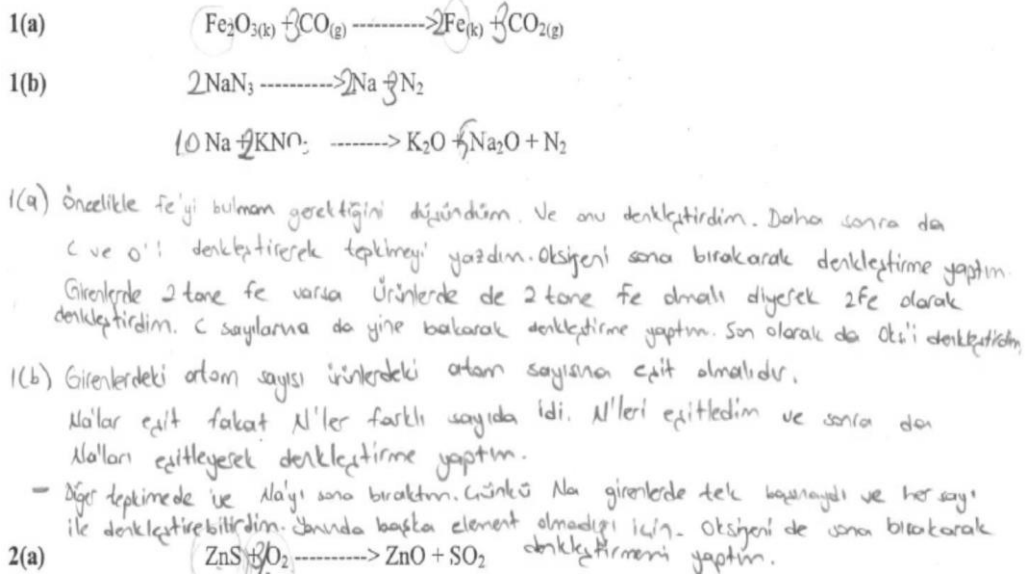 1(a) Fe₂O₃(k) + 3CO(g) ----------->2Fe(k) + 3CO₂(g)
1(b) 2NaN₃ ----------->2Na + 3N₂
10 Na + 2KNO₃ --------> K₂O + 5Na₂O + N₂
1(a) Öncelikle fe'yi bulmam gerektiğini düşündüm. Ve onu denkleştirdim. Daha sonra da
C ve O'i denkleştirerek tepkimeyi yazdım. Oksijeni sona bırakarak denkleştirme yaptım.
Girenlerde 2 tane fe varsa Ürünlerde de 2 tane Fe olmalı diyerek 2Fe olarak
denkleştirdim. C sayılarına da yine bakarak denkleştirme yaptım. Son olarak da Oks'i denkleştirdim
1(b) Girenlerdeki atom sayısı ürünlerdeki atom sayısına eşit olmalıdır.
Na'lar eşit fakat N'ler farklı sayıda idi. N'leri eşitledim ve sonra da
Na'ları eşitleyerek denkleştirme yaptım.
- Diğer tepkimede ise Na'yı sona bıraktım. Çünkü Na girenlerde tek başınaydı ve her sayı
ile denkleştirebilirdim. Yanında başka element olmadığı için. Oksijeni de sona bırakarak
denkleştirmemi yaptım.
2(a) ZnS + 3/2O₂ -----------> ZnO + SO₂